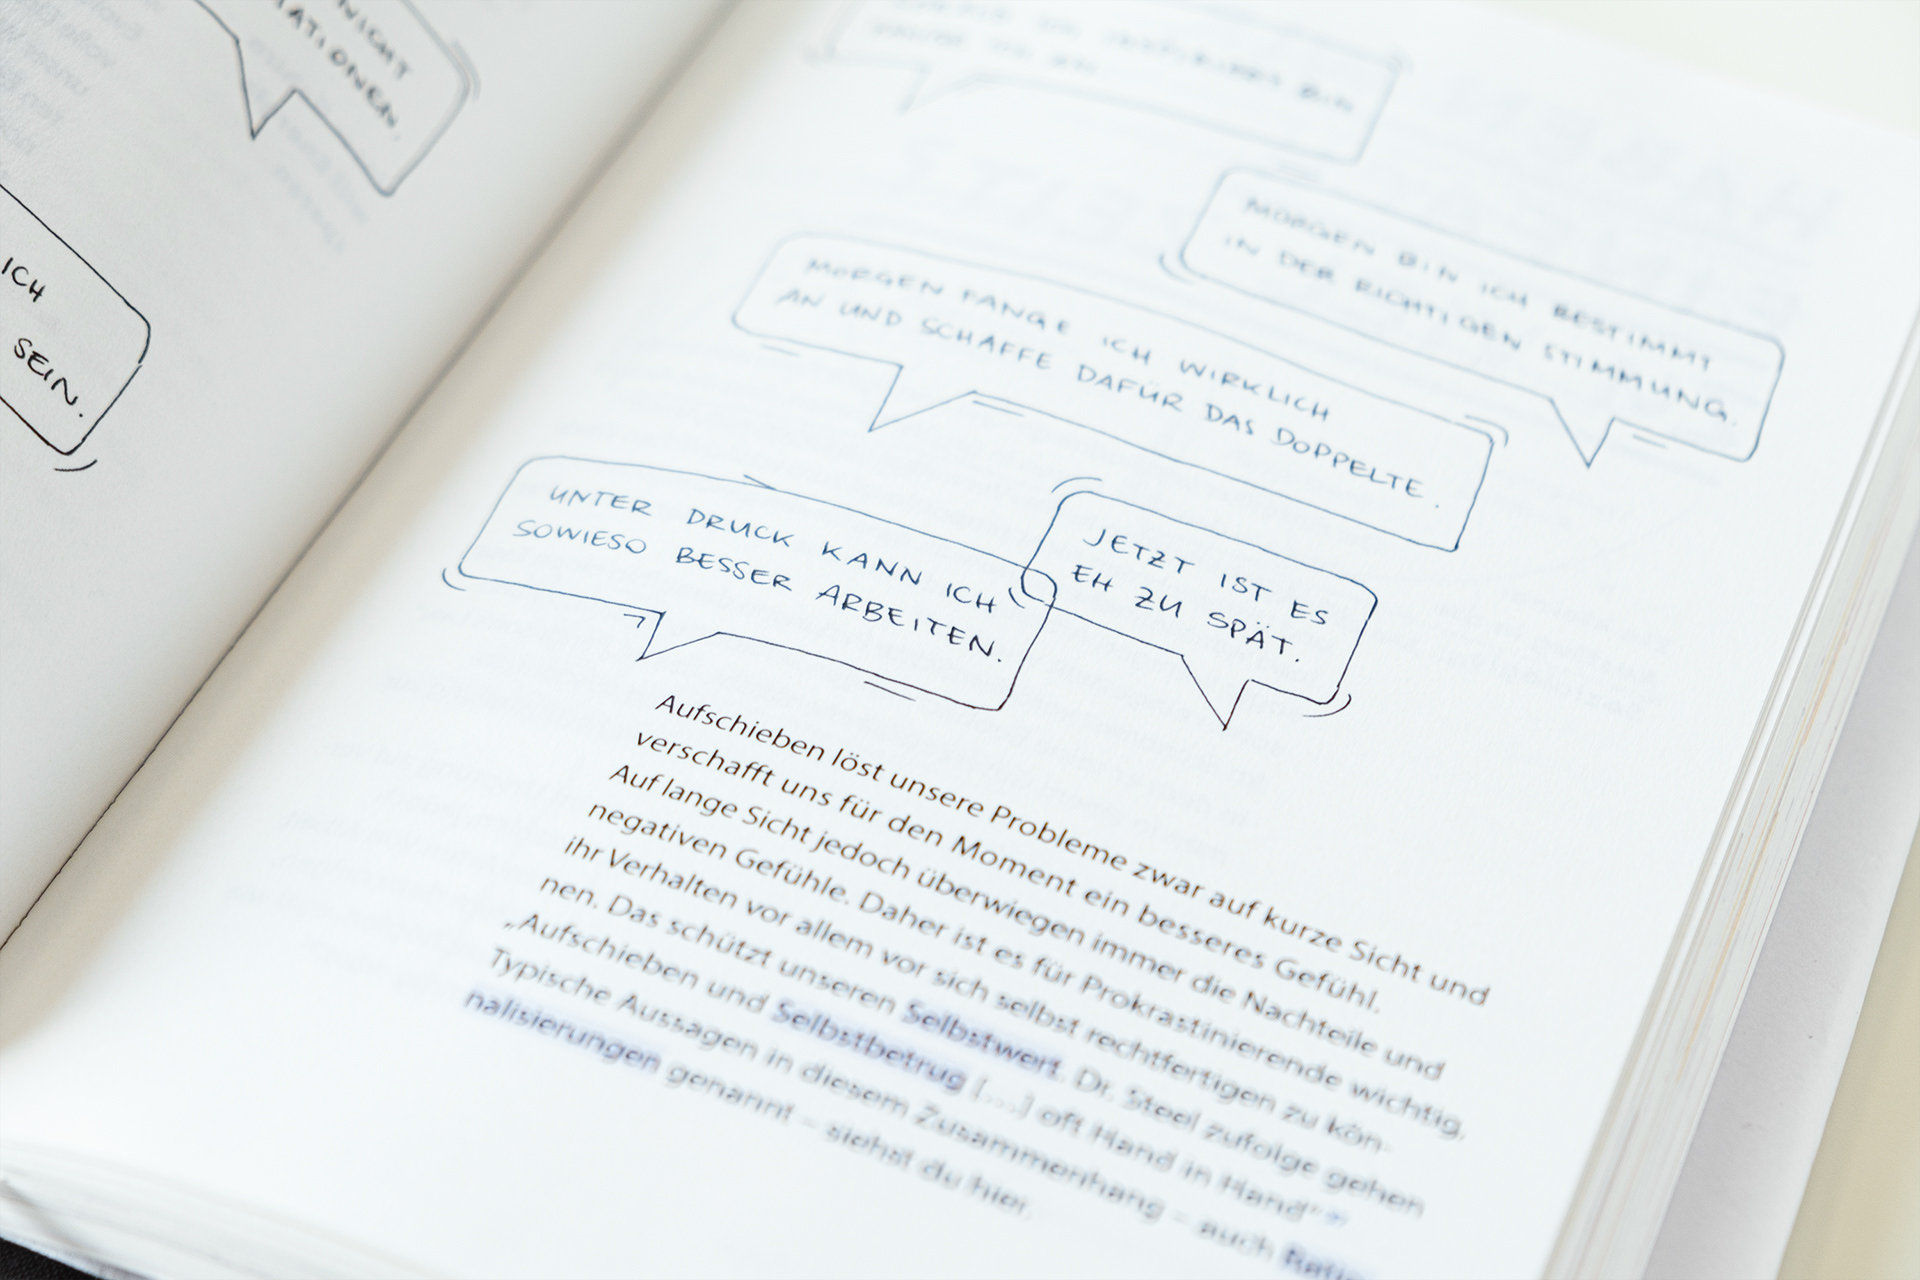 NICHT
ICH
SEIN.
MORGEN BIN ICH BESTIMMT
IN DER RICHTIGEN STIMMUNG.
MORGEN FANGE ICH WIRKLICH
AN UND SCHAFFE DAFÜR DAS DOPPELTE.
UNTER DRUCK KANN ICH
SOWIESO BESSER ARBEITEN.
JETZT IST ES
EH ZU SPÄT.
Aufschieben löst unsere Probleme zwar auf kurze Sicht und
verschafft uns für den Moment ein besseres Gefühl.
Auf lange Sicht jedoch überwiegen immer die Nachteile und
negativen Gefühle. Daher ist es für Prokrastinierende wichtig,
ihr Verhalten vor allem vor sich selbst rechtfertigen zu kön-
nen. Das schützt unseren Selbstwert. Dr. Steel zufolge gehen
„Aufschieben und Selbstbetrug [...] oft Hand in Hand“
Typische Aussagen in diesem Zusammenhang – auch Ratio-
nalisierungen genannt – siehst du hier.